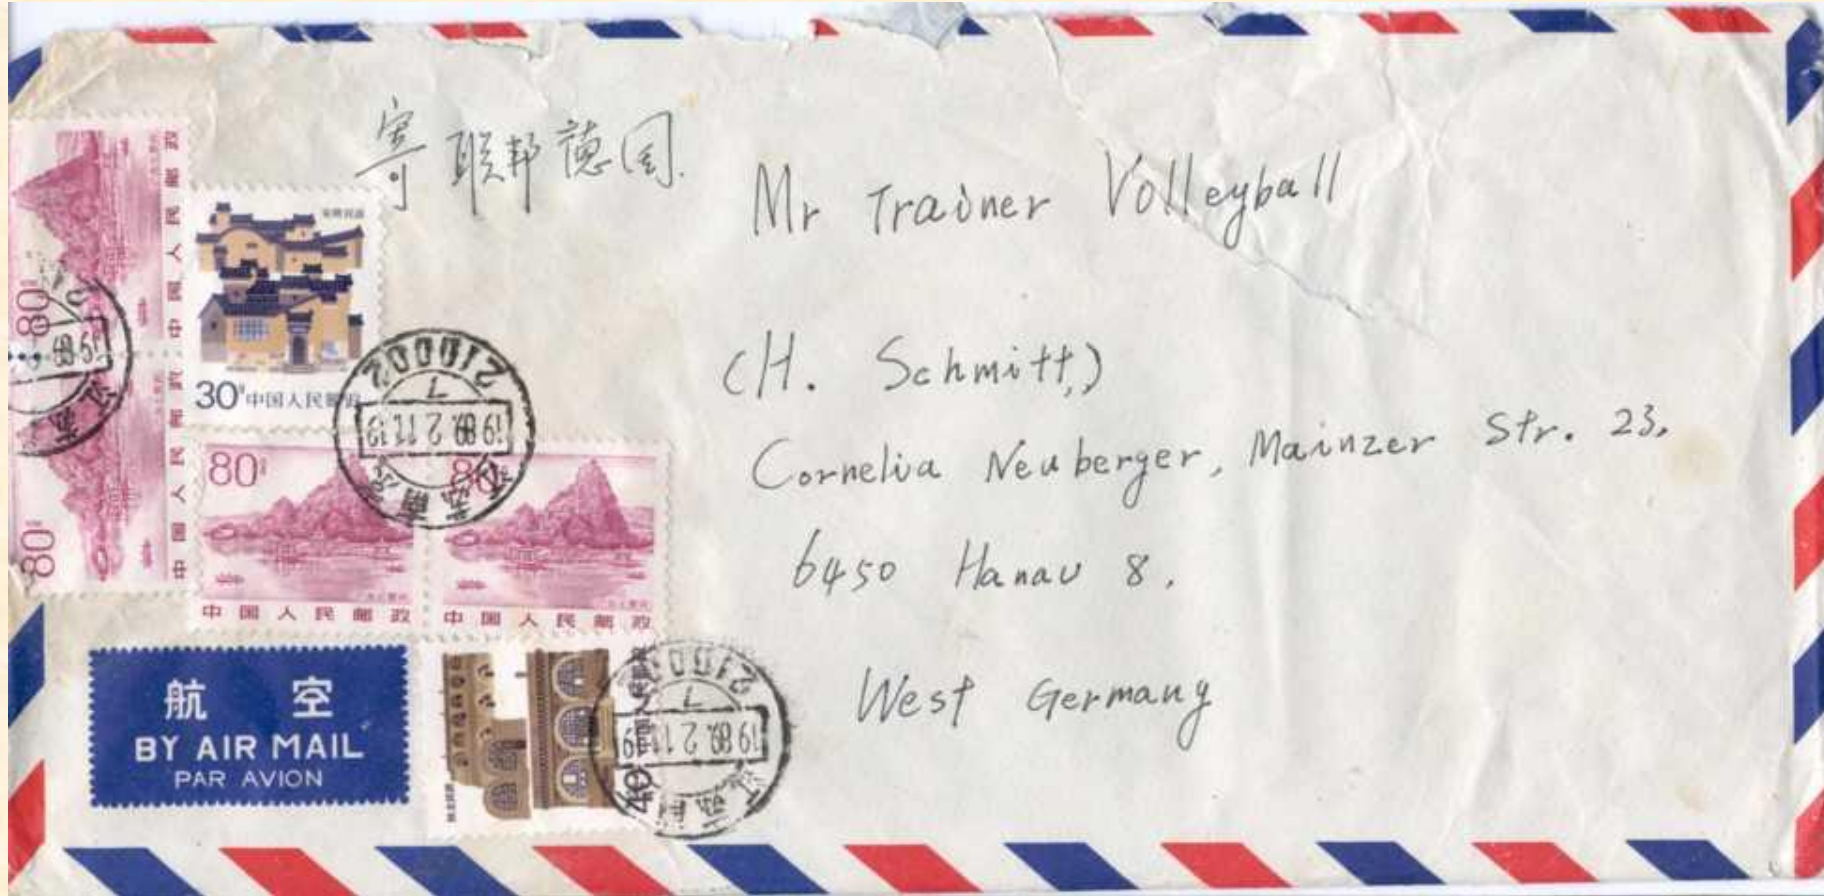 寄联邦德国.
Mr Trainer Volleyball
(H. Schmitt,)
Cornelia Neuberger, Mainzer Str. 23.
6450 Hanau 8.
West Germany
80分
中国人民邮政
80
中国人民邮政
安徽民居
30分 中国人民邮政
80分
中国人民邮政
80
中国人民邮政
210002
7
1989.2.11.13
江苏南京
40
中国人民邮政
210002
7
1989.2.11.
江苏南京
航空
BY AIR MAIL
PAR AVION